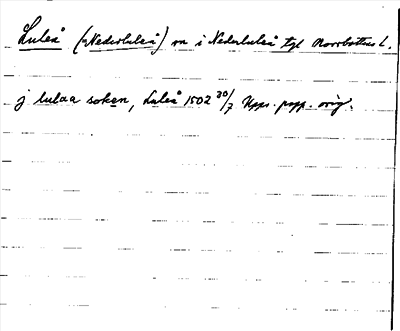 Luleå (=Nederluleå) sn i Nederluleå tgl Norrbottens l.
j lulaa soken, Luleå 1502 30/7 Upps. ppp. orig.